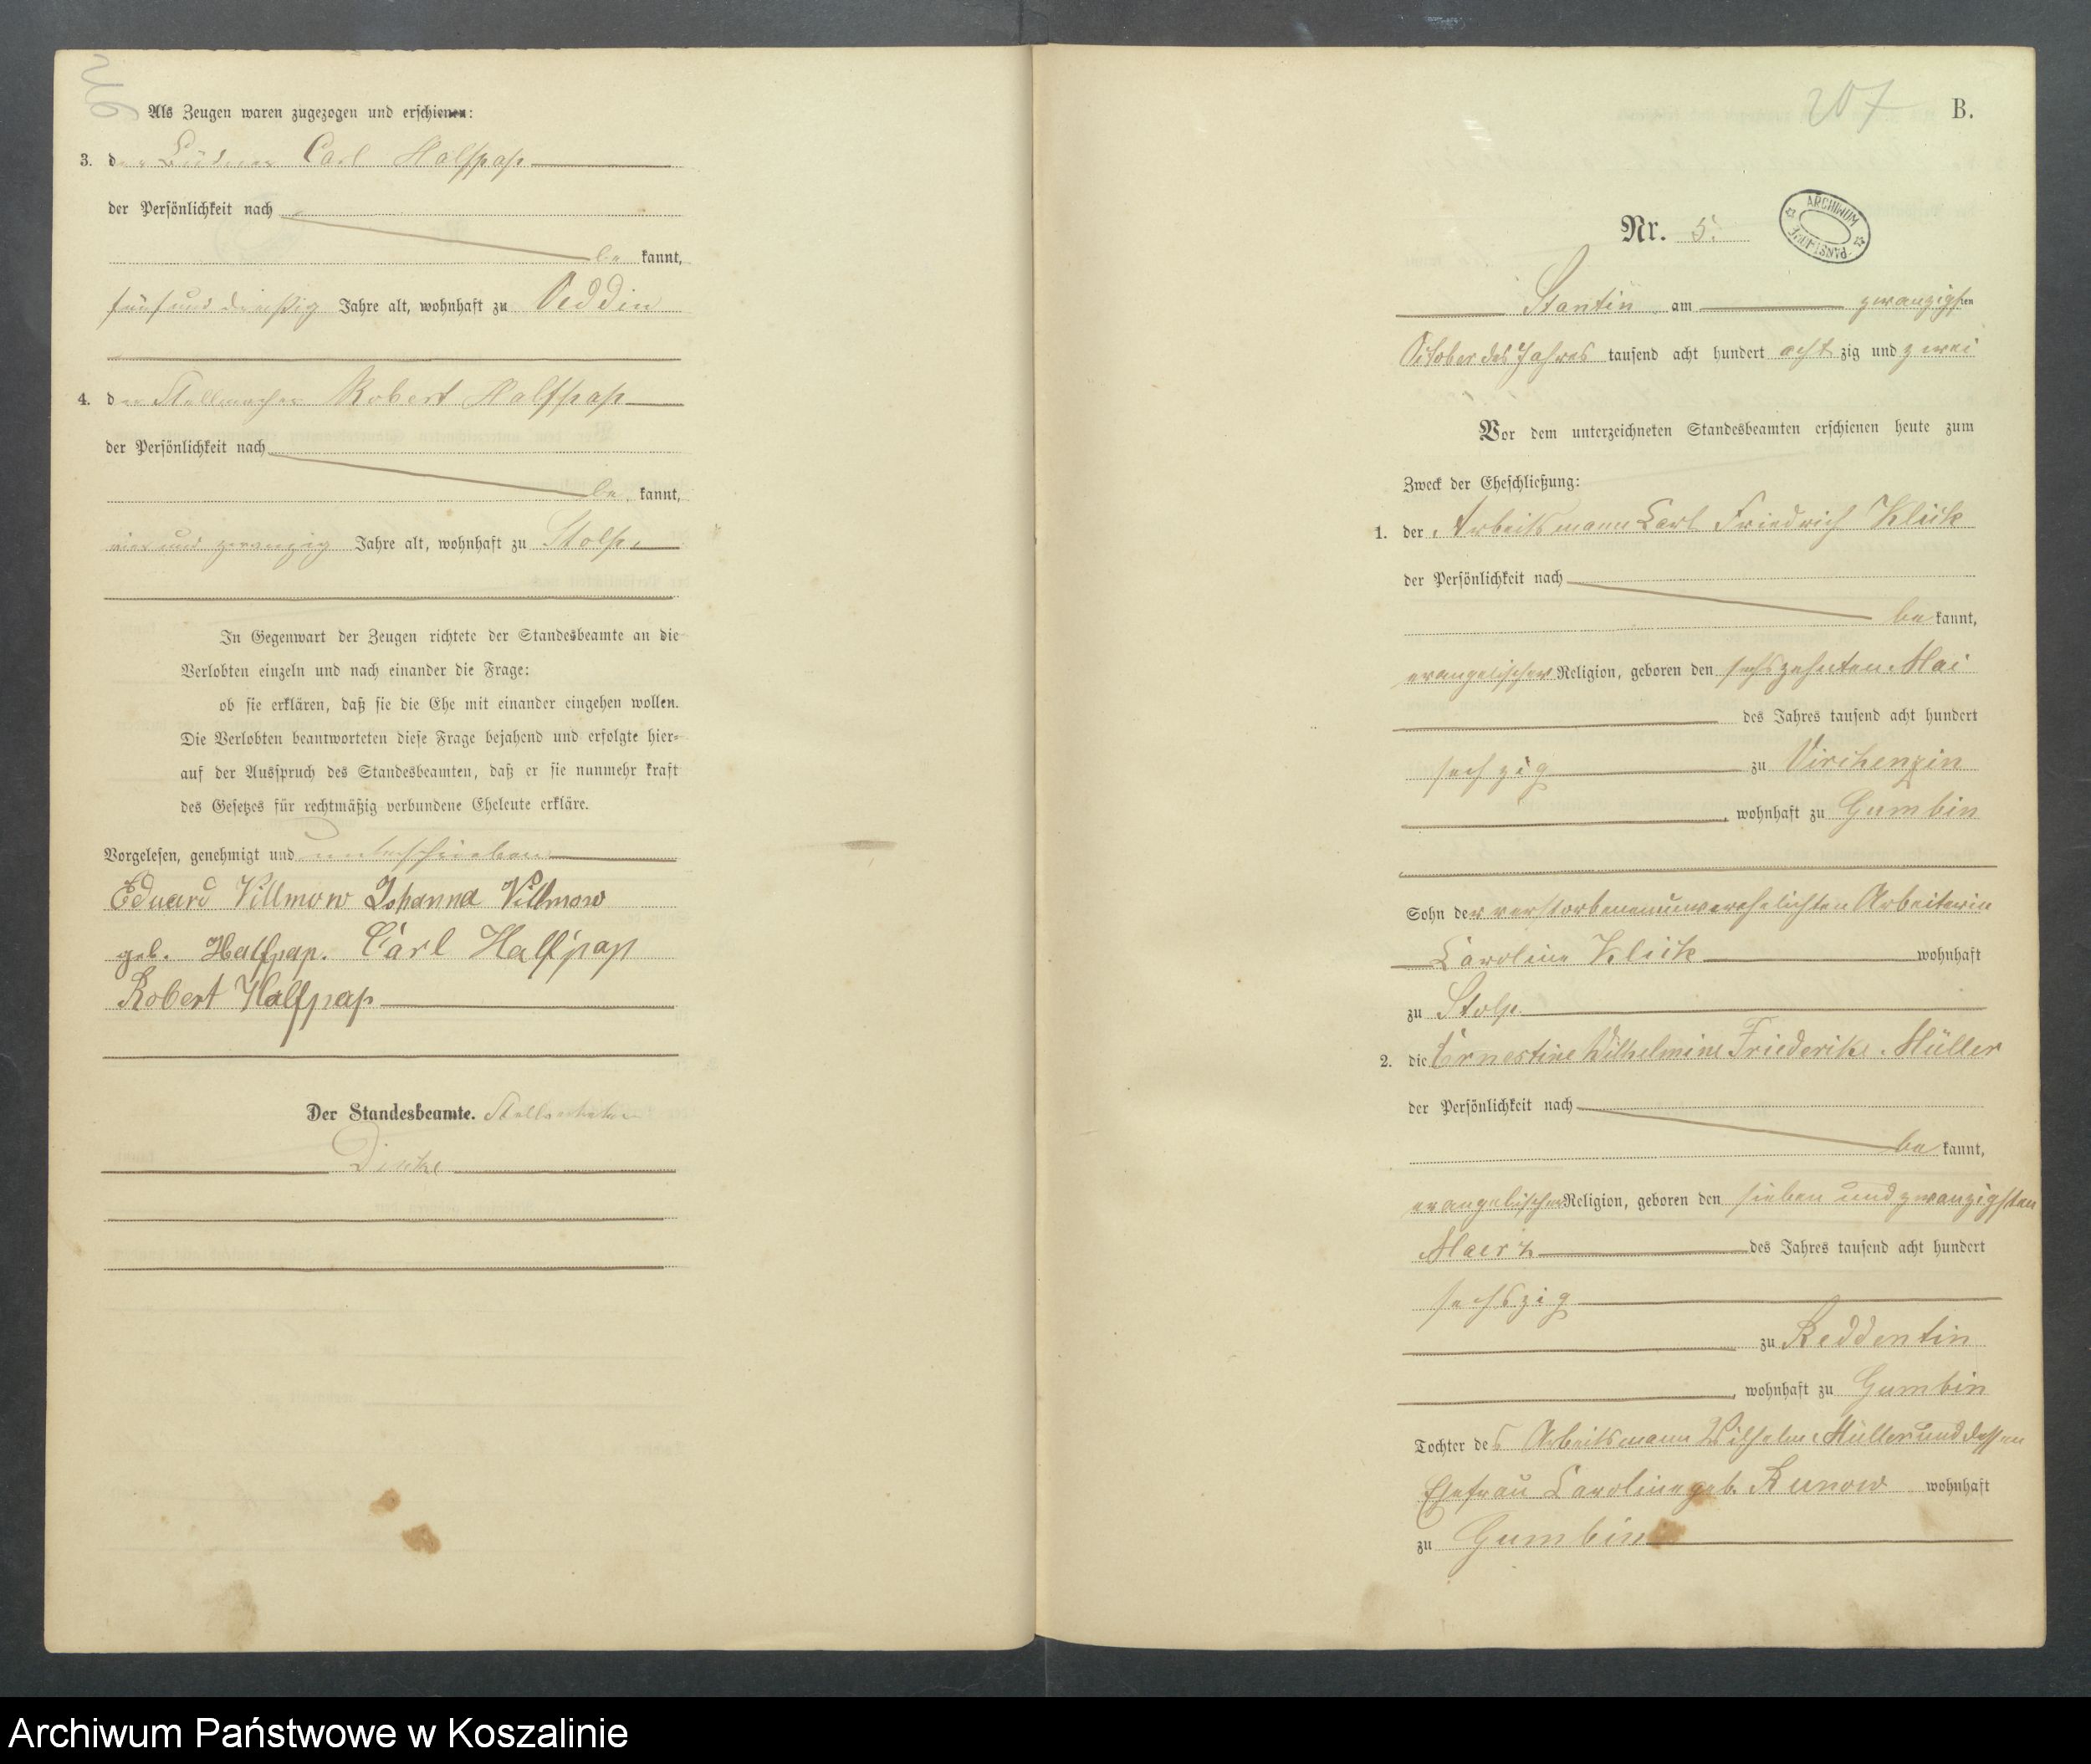 Als Zeugen waren zugezogen und erschienen:
3. der Büdner Carl Halfpap
der Persönlichkeit nach
be kannt,
fünf und dreißig Jahre alt, wohnhaft zu Veddin
4. der Stellmacher Robert Halfpap
der Persönlichkeit nach
be kannt,
vier und zwanzig Jahre alt, wohnhaft zu Stolp.
In Gegenwart der Zeugen richtete der Standesbeamte an die
Verlobten einzeln und nach einander die Frage:
ob sie erklären, daß sie die Ehe mit einander eingehen wollen.
Die Verlobten beantworteten diese Frage bejahend und erfolgte hier-
auf der Ausspruch des Standesbeamten, daß er sie nunmehr kraft
des Gesetzes für rechtmäßig verbundene Eheleute erkläre.
Vorgelesen, genehmigt und unterschrieben
Eduard Villmow Johanna Villmow
geb. Halfpap. Carl Halfpap
Robert Halfpap
Der Standesbeamte.
207 B.
ARCHIWUM PAŃSTWOWE
Nr. 5.
Stantin am zwanzigsten
October des Jahres tausend acht hundert acht zig und zwei
Vor dem unterzeichneten Standesbeamten erschienen heute zum
Zweck der Eheschließung:
1. der Arbeitsmann Carl Friedrich Klick
der Persönlichkeit nach
be kannt,
evangelischer Religion, geboren den sechszehnten Mai
des Jahres tausend acht hundert
sechzig zu Virchenzin
, wohnhaft zu Gumbin
Sohn der verstorbenen unverehelichten Arbeiterin
Caroline Klick wohnhaft
zu Stolp.
2. die Ernestine Wilhelmine Friederike Müller
der Persönlichkeit nach
be kannt,
evangelischer Religion, geboren den sieben und zwanzigsten
Maerz des Jahres tausend acht hundert
sechszig
zu Reddentin
, wohnhaft zu Gumbin
Tochter des Arbeitsmann Wilhelm Müller und dessen
Ehefrau Caroline geb. Runow wohnhaft
zu Gumbin
Archiwum Państwowe w Koszalinie